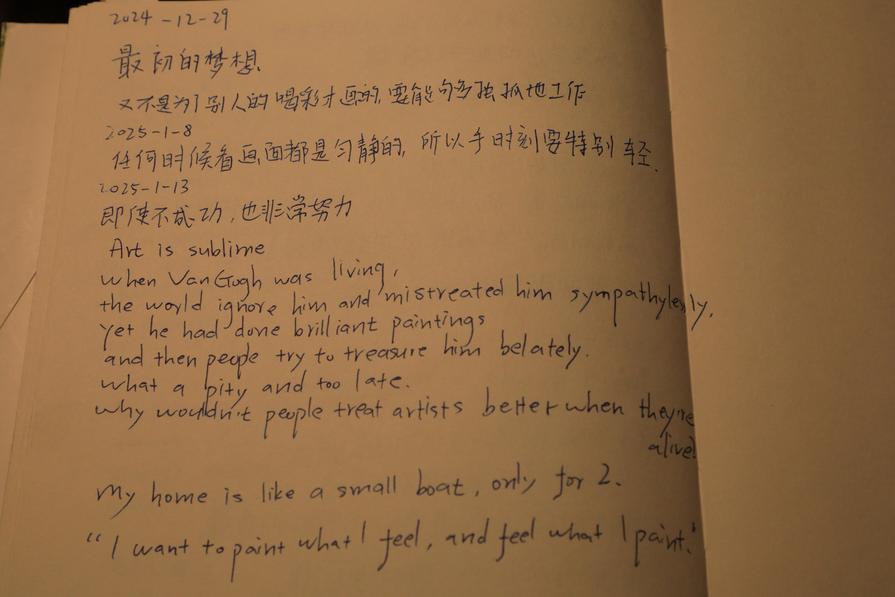 2024-12-29
最初的梦想
又不是为了别人的喝彩才画的，要能够多独孤地工作
2025-1-8
任何时候看画面都是匀静的，所以手时刻要特别轻.
2025-1-13
即使不成功，也非常努力
Art is sublime
when Van Gogh was living,
the world ignore him and mistreated him sympathylessly,
yet he had done brilliant paintings
and then people try to treasure him belately.
what a pity and too late.
why wouldn't people treat artists better when they're
alive?
My home is like a small boat, only for 2.
"I want to paint what I feel, and feel what I paint."